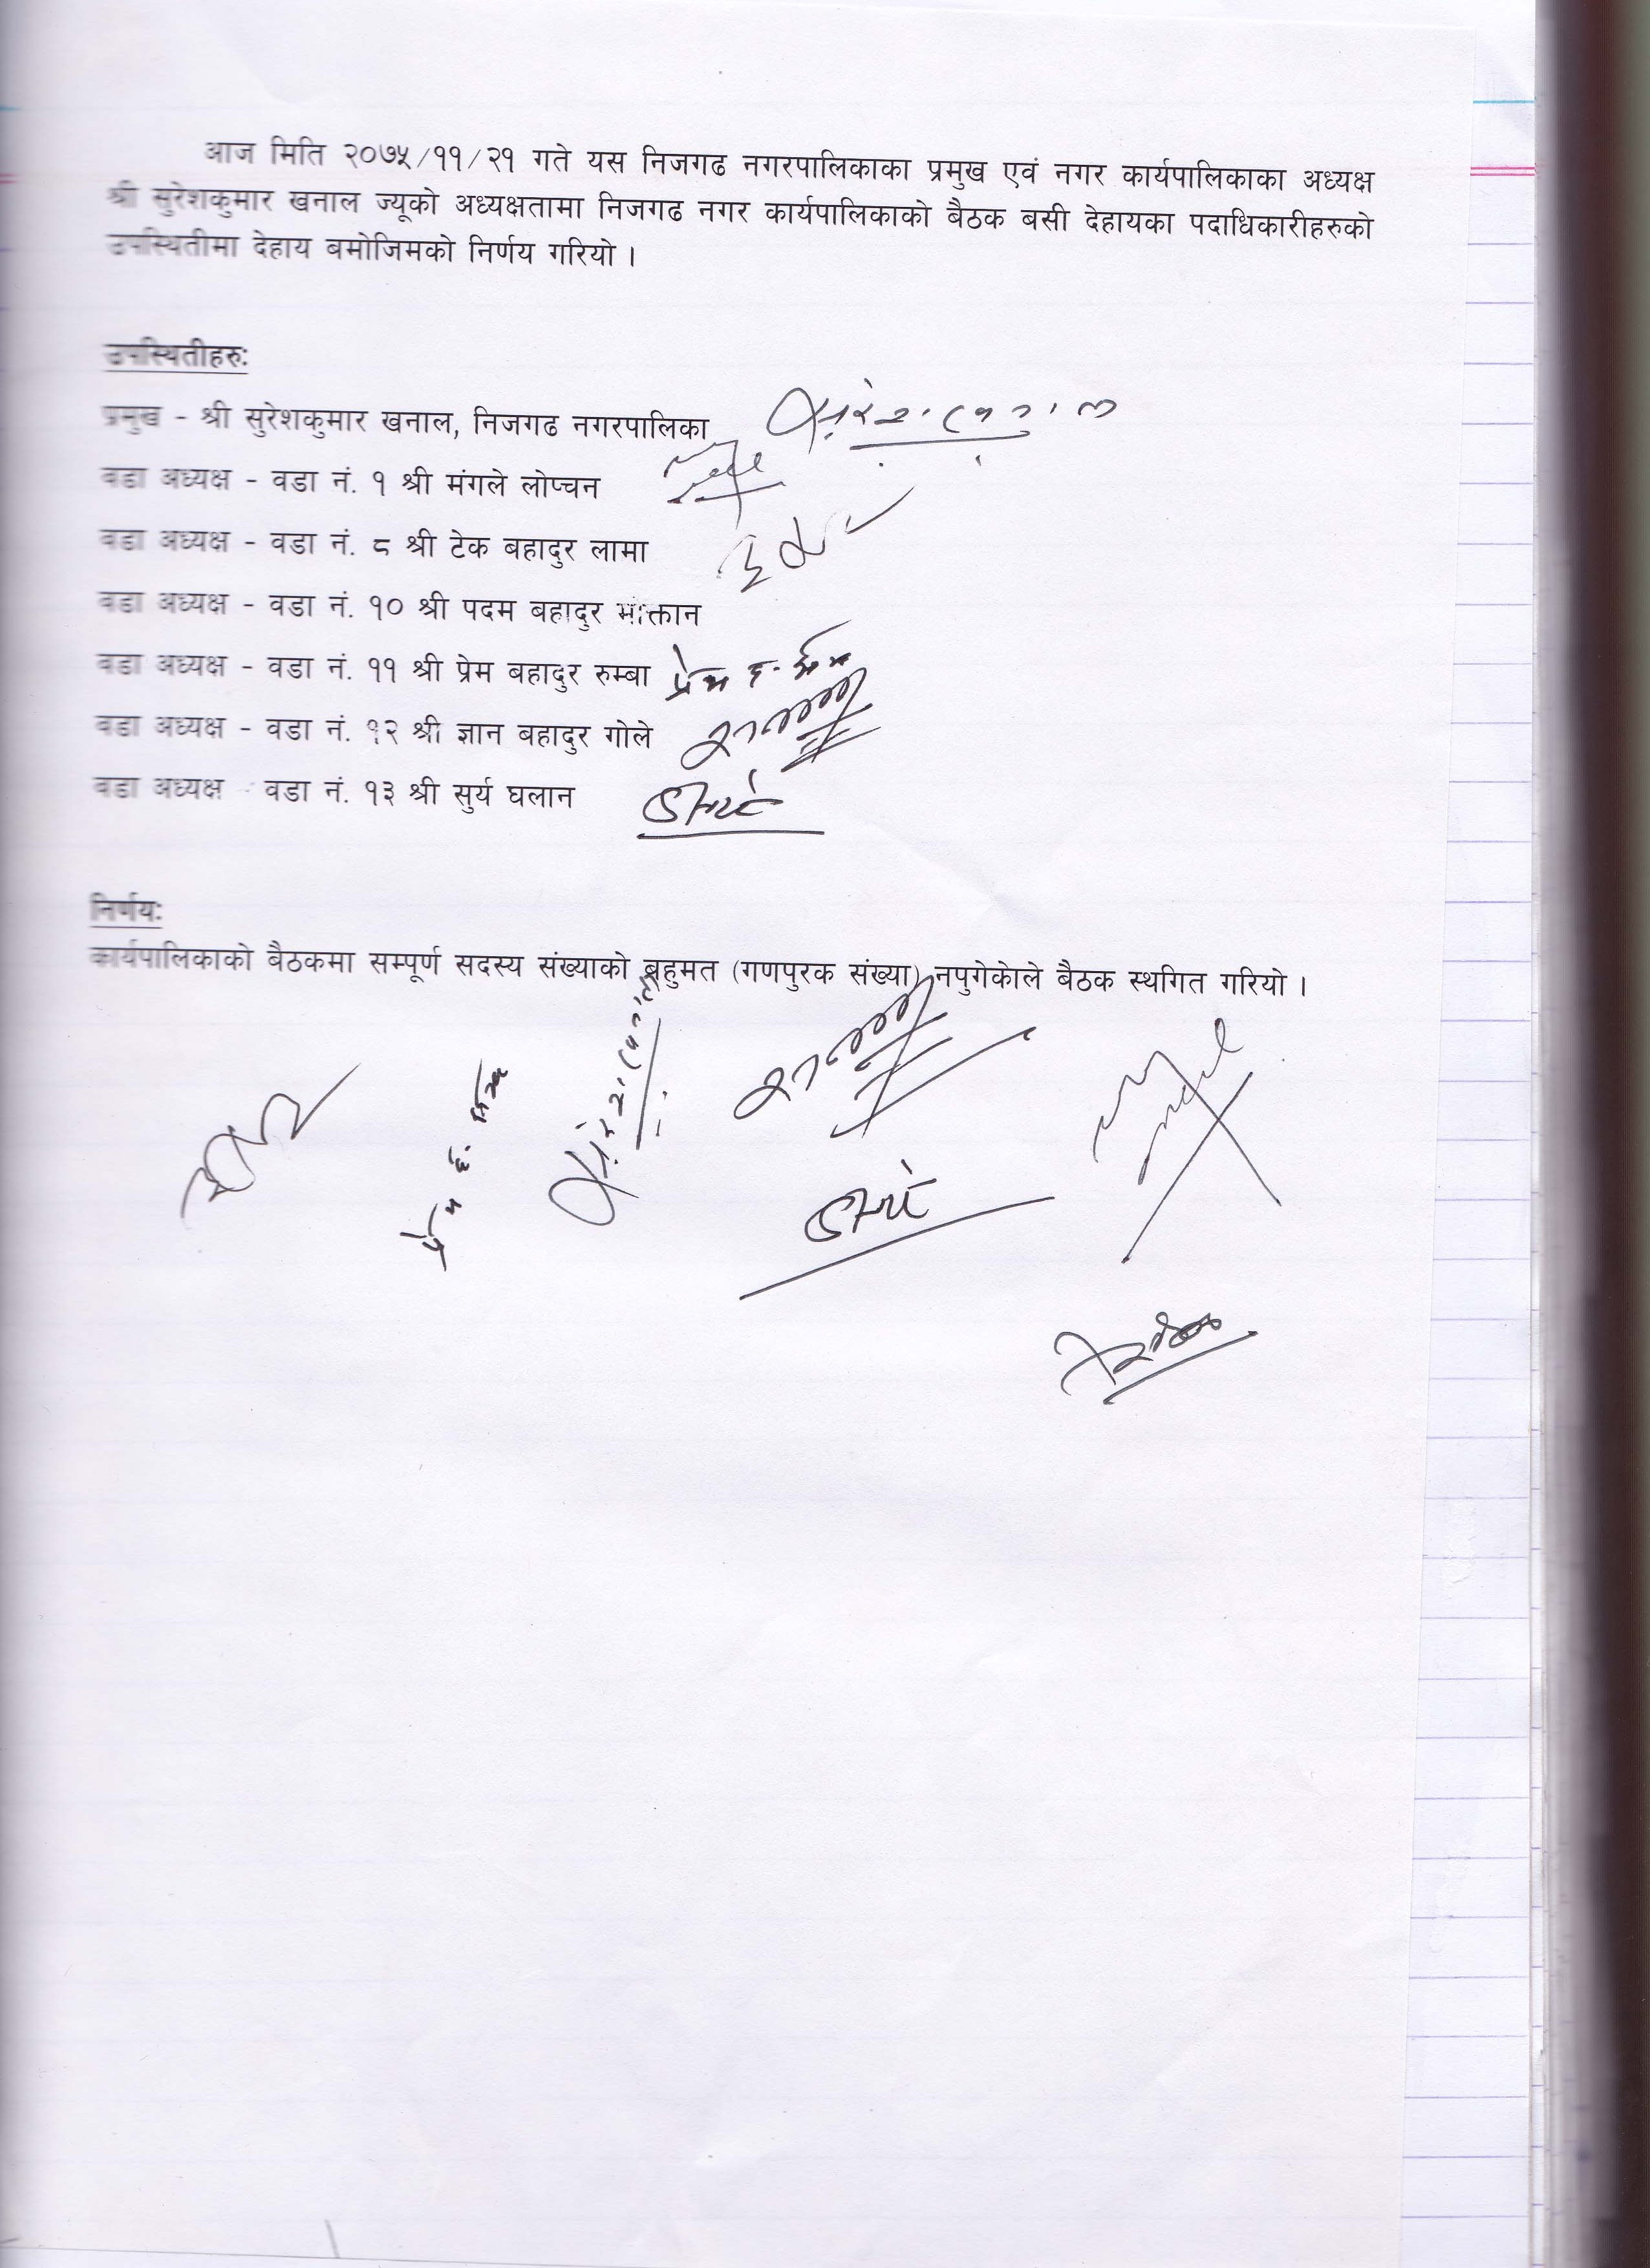 आज मिति २०७५/११/२१ गते यस निजगढ नगरपालिकाका प्रमुख एवं नगर कार्यपालिकाका अध्यक्ष
श्री सुरेशकुमार खनाल ज्यूको अध्यक्षतामा निजगढ नगर कार्यपालिकाको बैठक बसी देहायका पदाधिकारीहरुको
उपस्थितीमा देहाय बमोजिमको निर्णय गरियो ।
उपस्थितीहरु:
प्रमुख - श्री सुरेशकुमार खनाल, निजगढ नगरपालिका
वडा अध्यक्ष - वडा नं. १ श्री मंगले लोप्चन
वडा अध्यक्ष - वडा नं. ८ श्री टेक बहादुर लामा
वडा अध्यक्ष - वडा नं. १० श्री पदम बहादुर मोक्तान
वडा अध्यक्ष - वडा नं. ११ श्री प्रेम बहादुर रुम्बा
वडा अध्यक्ष - वडा नं. १२ श्री ज्ञान बहादुर गोले
वडा अध्यक्ष - वडा नं. १३ श्री सुर्य घलान
निर्णय:
कार्यपालिकाको बैठकमा सम्पूर्ण सदस्य संख्याको बहुमत (गणपुरक संख्या) नपुगेकोले बैठक स्थगित गरियो ।